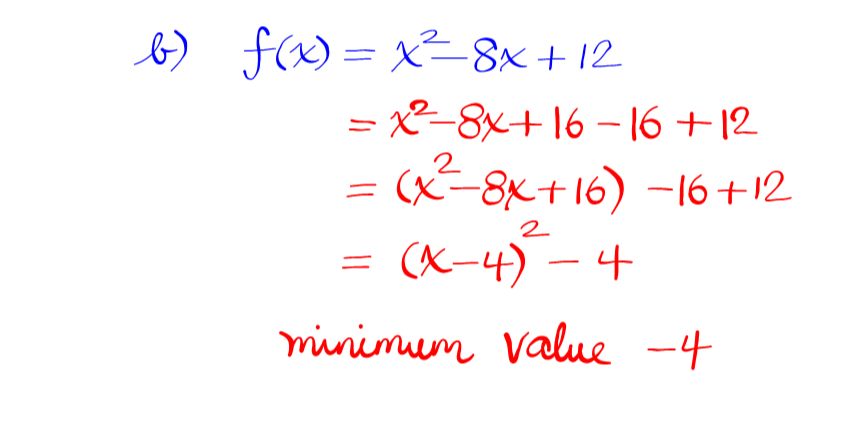 b) f(x) = x² - 8x + 12
= x² - 8x + 16 - 16 + 12
= (x² - 8x + 16) - 16 + 12
= (x - 4)² - 4
minimum value -4